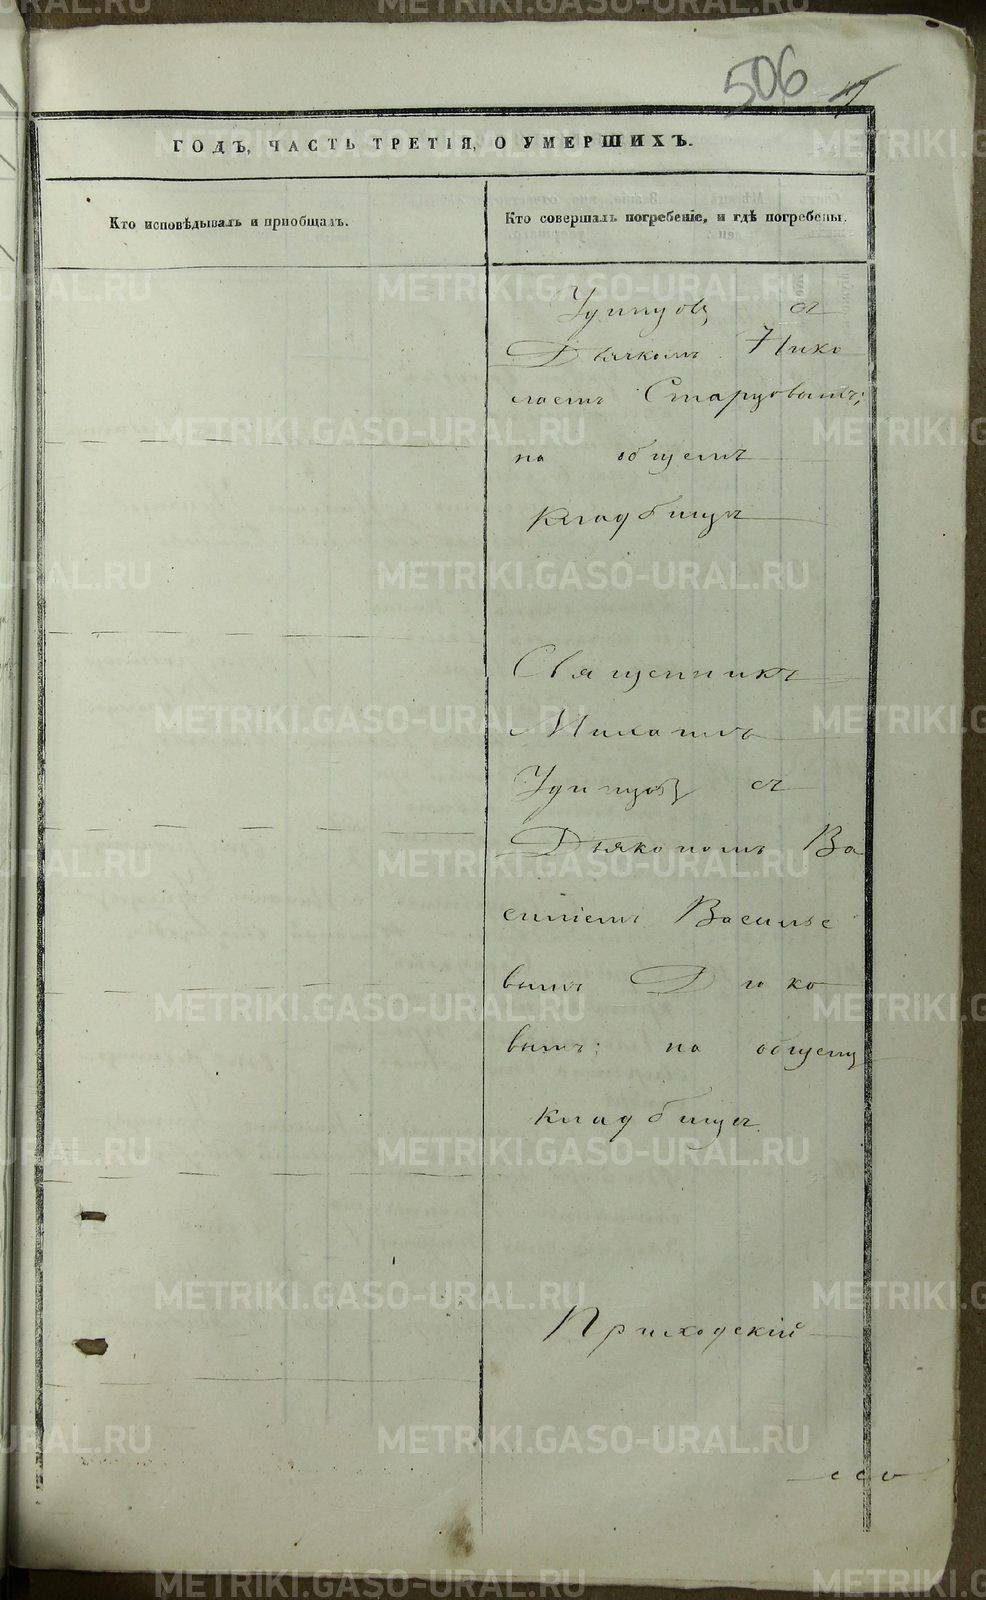 506
ГОДЪ, ЧАСТЬ ТРЕТІЯ, О УМЕРШИХЪ.
Кто исповѣдывалъ и пріобщалъ.
Кто совершалъ погребеніе, и гдѣ погребены.
Удинцовъ съ
Дьячкомъ Нико
лаемъ Старцовымъ;
на общемъ
кладбищѣ
Священникъ
Михаилъ
Удинцовъ съ
Дьякономъ Ва
силіемъ Василье
вымъ Дяго
вымъ; на общемъ
кладбищѣ.
Приходскій
METRIKI.GASO-URAL.RU